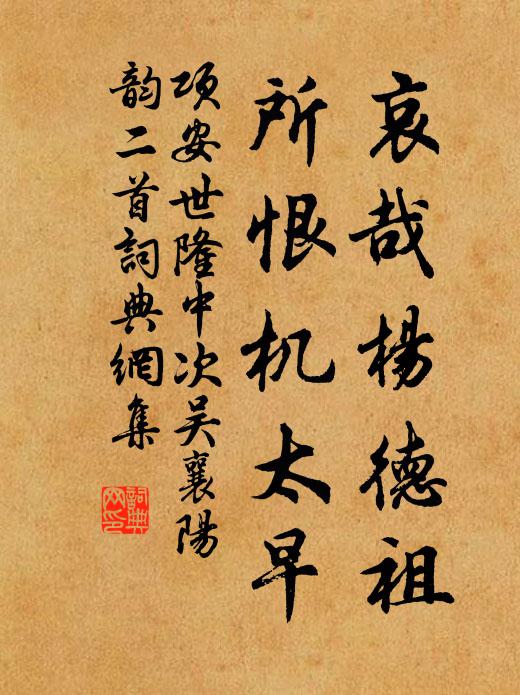 哀哉楊德祖
所恨机太早
項安世隆中次吴襄陽
韵二首詞典網集
詞典
网印